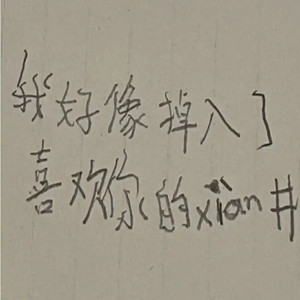 我好像掉入了
喜欢你的xiàn井